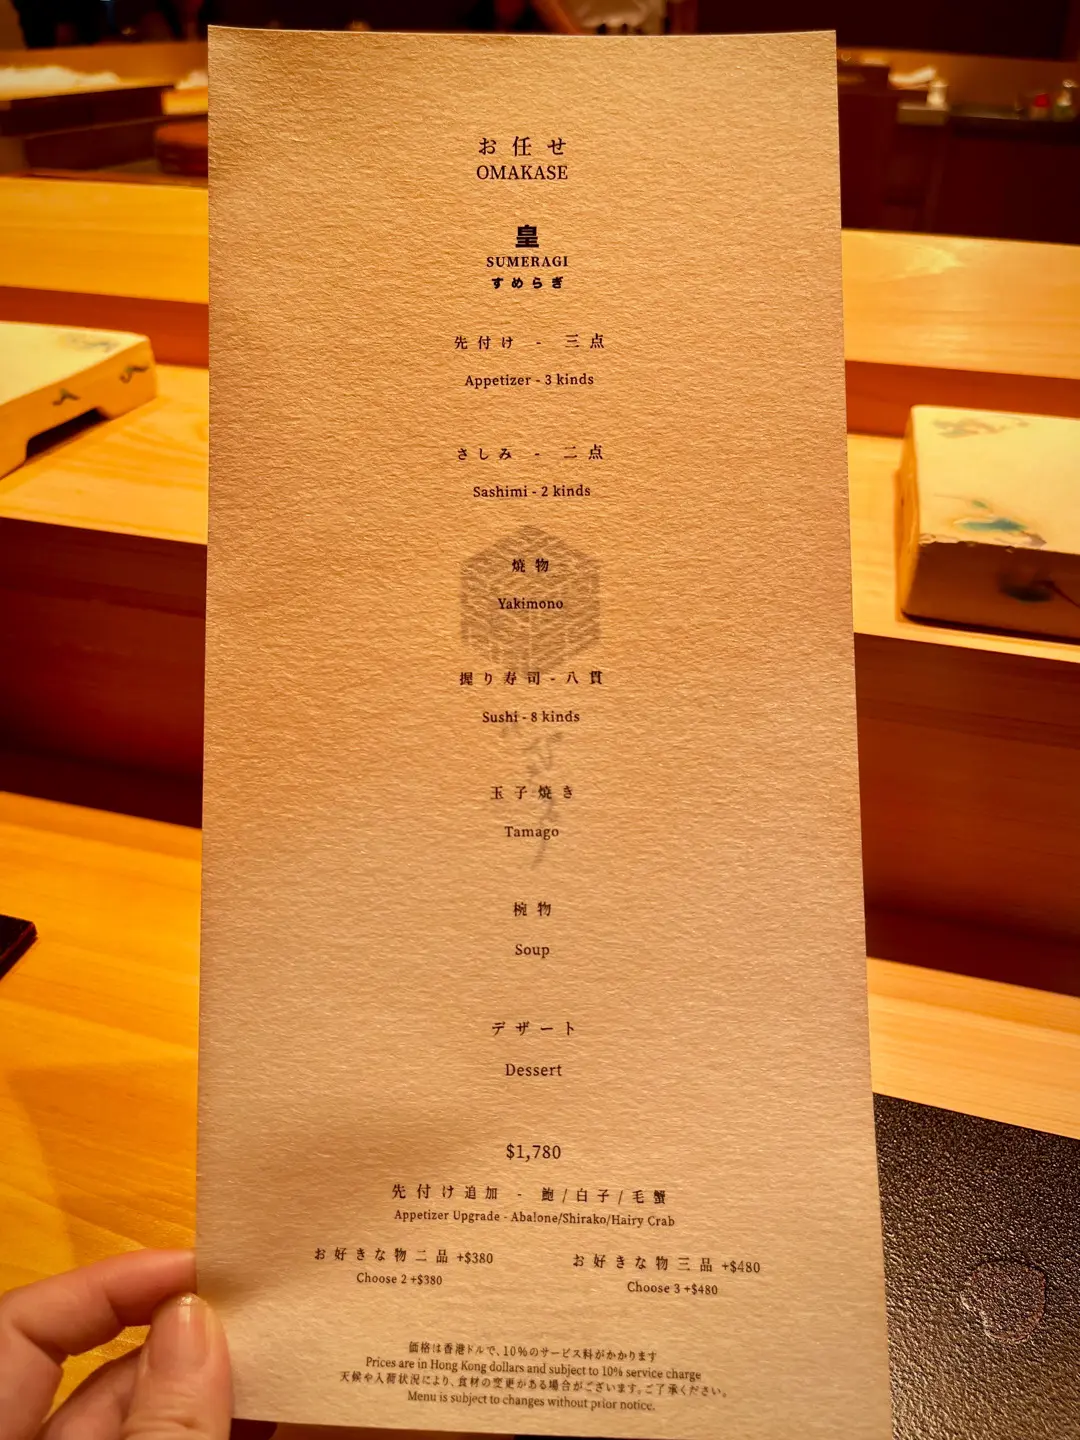 お任せ
OMAKASE
皇
SUMERAGI
すめらぎ
先付け - 三点
Appetizer - 3 kinds
さしみ - 二点
Sashimi - 2 kinds
焼物
Yakimono
握り寿司 - 八貫
Sushi - 8 kinds
玉子焼き
Tamago
椀物
Soup
デザート
Dessert
$1,780
先付け追加 - 鮑/白子/毛蟹
Appetizer Upgrade - Abalone/Shirako/Hairy Crab
お好きな物二品 +$380
Choose 2 +$380
お好きな物三品 +$480
Choose 3 +$480
価格は香港ドルで、10%のサービス料がかかります
Prices are in Hong Kong dollars and subject to 10% service charge
天候や入荷状況により、食材の変更がある場合がございます。ご了承ください。
Menu is subject to changes without prior notice.